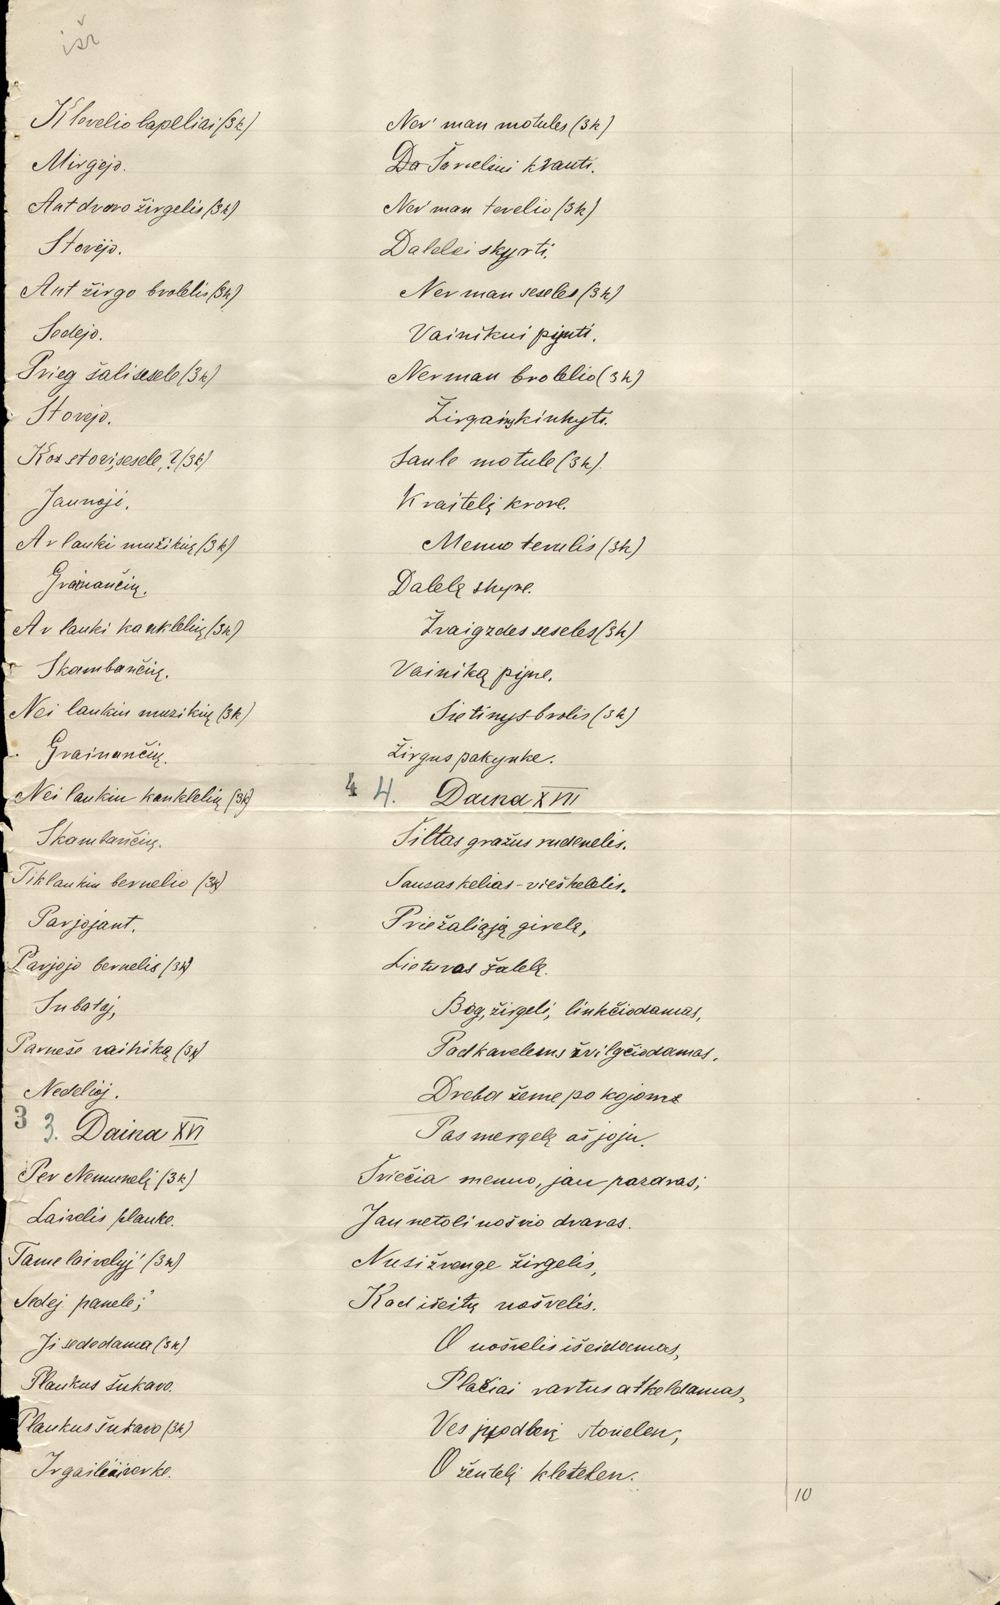 išr
Klevelio lapeliai (3k)
Mirgėjo.
Ant dvaro žirgelis (3k)
Stovėjo.
Ant žirgo brolelis (3k)
Sedėjo.
Prieg šali sesele (3k)
Stovejo.
Kos stovi, sesele,? (3k)
Jaunoji.
Ar lauki muzikių (3k)
Grainančių.
Ar lauki kanklelių (3k)
Skambančių.
Nei laukiu muzikių (3k)
Grainančių.
Nei laukiu kanklelių (3k)
Skambančių.
Tik laukiu bernelio (3k)
Parjojant.
Parjojo bernelis (3k)
Subatoj,
Parneše vainiką (3k)
Nedelioj.
3 3. Daina XVI
Per Nemunelį (3k)
Laivelis plauke.
Tame laivelyj' (3k)
Sedej panele;
Ji sededama (3k)
Plaukus šukavo.
Plaukus šukavo (3k)
Ir gailiai verke.
Ner' man motules (3k)
Kraiteliui krauti.
Ner' man tevelio (3k)
Dalelei skyrti.
Ner man seseles (3k)
Vainikui pinti.
Ner man brolelio (3k)
Saule motule (3k)
Kraitelį krove.
Menuo tevulis (3k)
Dalelę skyre.
Žvaigzdes seseles (3k)
Vainiką pyne.
Sietinys-brolis (3k)
Žirgus pakynke.
4 4. Daina XVII
Šiltas gražus rudenelis.
Sausas kelias-vieškelelis.
Prie žaliąją girelę,
Lietuvos šalelę.
Bėg, žirgeli, linkčiodamas,
Padkavelems žvilgčiodamas.
Dreba žeme po kojoms
Pas mergelę aš joju.
Šviečia menuo, jau pazaras;
Jau netoli uošvio dvaras.
Nusižvenge žirgelis,
Kad išeitų uošvelis.
O uošvelis išeidamas,
Plačiai vartus atkeldamas,
Ves juodberį stonelen,
O žentelį kletelen.
10